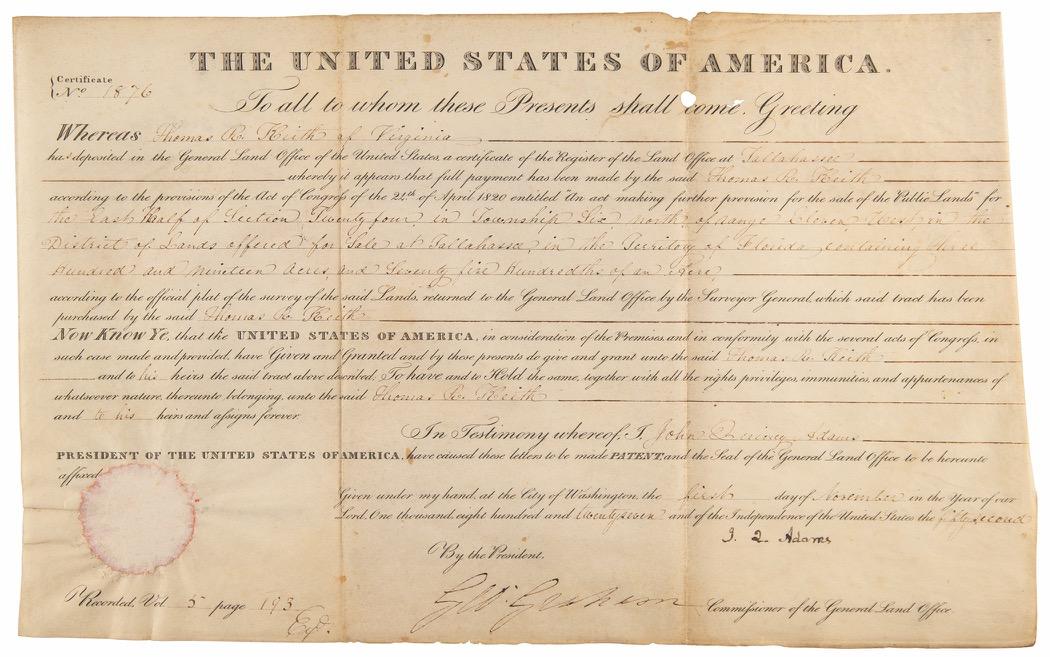 THE UNITED STATES OF AMERICA.
Certificate
No 1876
To all to whom these Presents shall come, Greeting
Whereas Thomas R. Keith of Virginia
has deposited in the General Land Office of the United States, a certificate of the Register of the Land Office at Tallahassee
whereby it appears that full payment has been made by the said Thomas R. Keith
according to the provisions of the Act of Congress of the 24th of April 1820 entitled "An act making further provision for the sale of the Public Lands" for
the East Half of Section Twenty four in Township Six north of range Eleven West, in the
District of Lands offered for Sale at Tallahassee, in the Territory of Florida, containing three
Hundred and nineteen Acres, and Seventy five Hundredths of an Acre
according to the official plat of the survey of the said Lands, returned to the General Land Office by the Surveyor General, which said tract has been
purchased by the said Thomas R. Keith
Now Know Ye, that the UNITED STATES OF AMERICA, in consideration of the Premises, and in conformity with the several acts of Congress, in
such case made and provided, have Given and Granted and by these presents do give and grant unto the said Thomas R. Keith
and to his heirs the said tract above described, To have and to Hold the same, together with all the rights, privileges, immunities, and appurtenances of
whatsoever nature, thereunto belonging, unto the said Thomas R. Keith
and to his heirs and assigns forever.
In Testimony whereof, I, John Quincy Adams
PRESIDENT OF THE UNITED STATES OF AMERICA, have caused these letters to be made PATENT, and the Seal of the General Land Office to be hereunto
affixed.
Given under my hand, at the City of Washington, the first day of November in the Year of our
Lord, One thousand eight hundred and twenty seven and of the Independence of the United States the fifty second
J. Q. Adams
By the President,
Geo Graham Commissioner of the General Land Office.
Recorded, Vol 5 page 193
Exd.